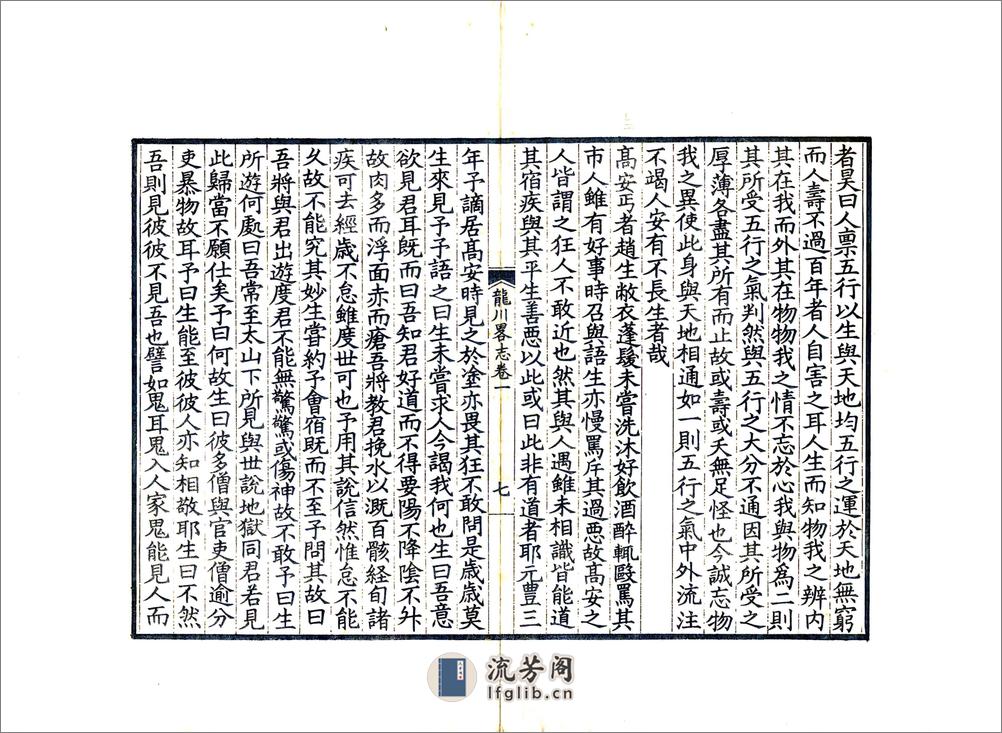 者昊曰人禀五行以生與天地均五行之運於天地無窮
而人壽不過百年者人自害之耳人生而知物我之辨内
其在我而外其在物物我之情不忘於心我與物爲二則
其所受五行之氣判然與五行之大分不通因其所受之
厚薄各盡其所有而止故或壽或夭無足怪也今誠忘物
我之異使此身與天地相通如一則五行之氣中外流注
不竭人安有不長生者哉
高安丐者趙生敝衣蓬髮未嘗洗沐好飲酒醉輒毆罵其
市人雖有好事時召與語生亦慢罵斥其過惡故高安之
人皆謂之狂人不敢近也然其與人遇雖未相識皆能道
其宿疾與其平生善惡以此或曰此非有道者耶元豊三
龍川畧志卷一
七
年予謫居高安時見之於塗亦畏其狂不敢問是歲歲莫
生來見予予語之曰生未嘗求人今謁我何也生曰吾意
欲見君耳既而曰吾知君好道而不得要陽不降隂不升
故肉多而浮面赤而瘡吾將教君挽水以溉百骸経旬諸
疾可去經歲不怠雖度世可也予用其說信然惟怠不能
乆故不能究其妙生嘗約予會宿既而不至予問其故曰
吾將與君出遊度君不能無驚驚或傷神故不敢予曰生
所遊何處曰吾常至太山下所見與世說地獄同君若見
此歸當不願仕矣予曰何故生曰彼多僧與官吏僧逾分
吏暴物故耳予曰生能至彼彼人亦知相敬耶生曰不然
吾則見彼彼不見吾也譬如鬼耳鬼入人家鬼能見人而
流芳阁
lfglib.cn